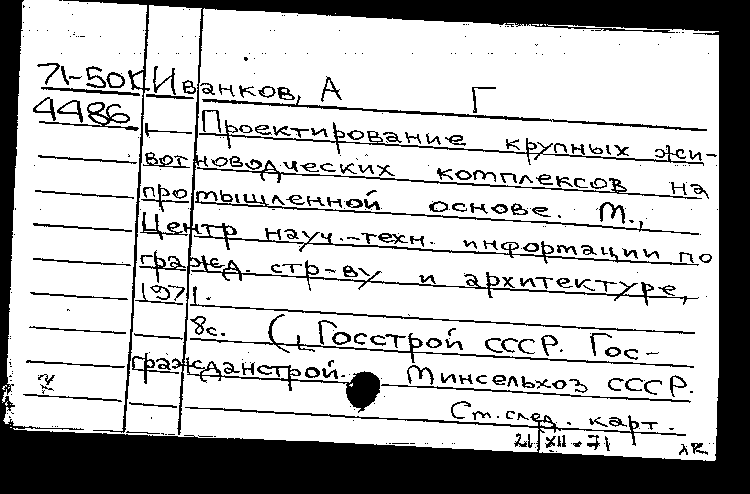 71-50К Иванков, А Г
4486 Проектирование крупных жи-
вотноводческих комплексов на
промышленной основе. М.,
Центр науч.-техн. информации по
гражд. стр-ву и архитектуре,
1971.
8с. (Госстрой СССР. Гос-
гражданстрой. Минсельхоз СССР.
Ст. след. карт.
21/XII-71